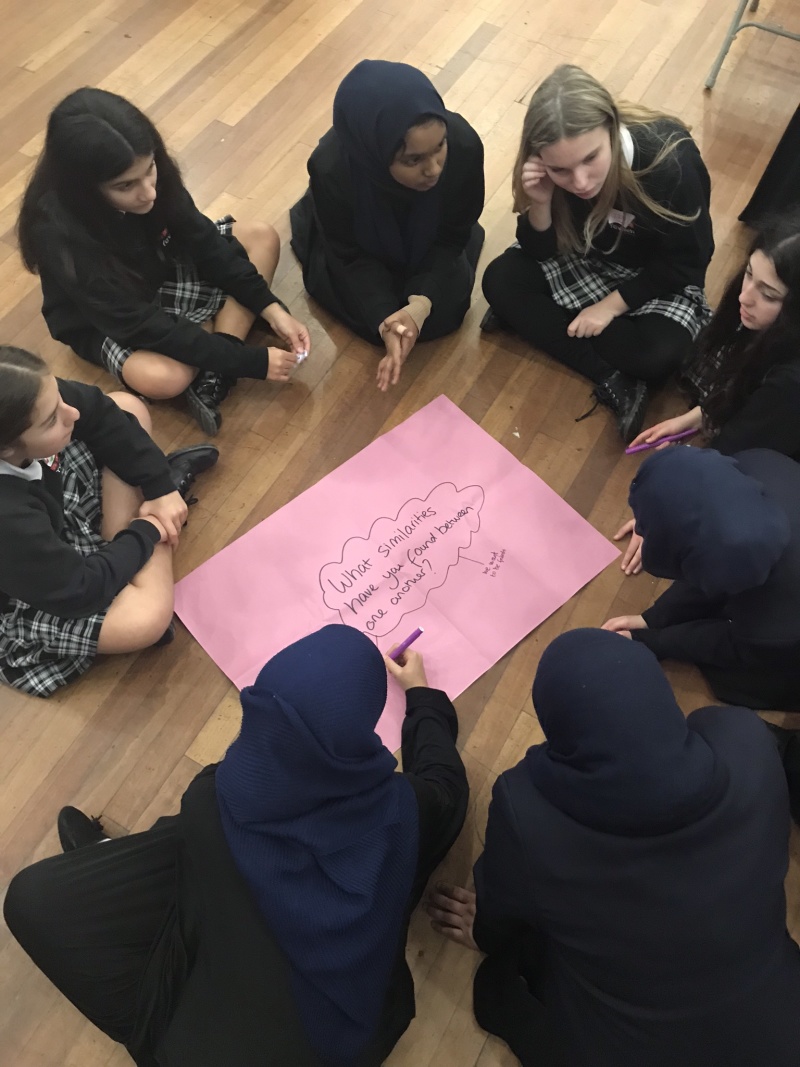 What similarities
have you found between
one another?
we want
to be